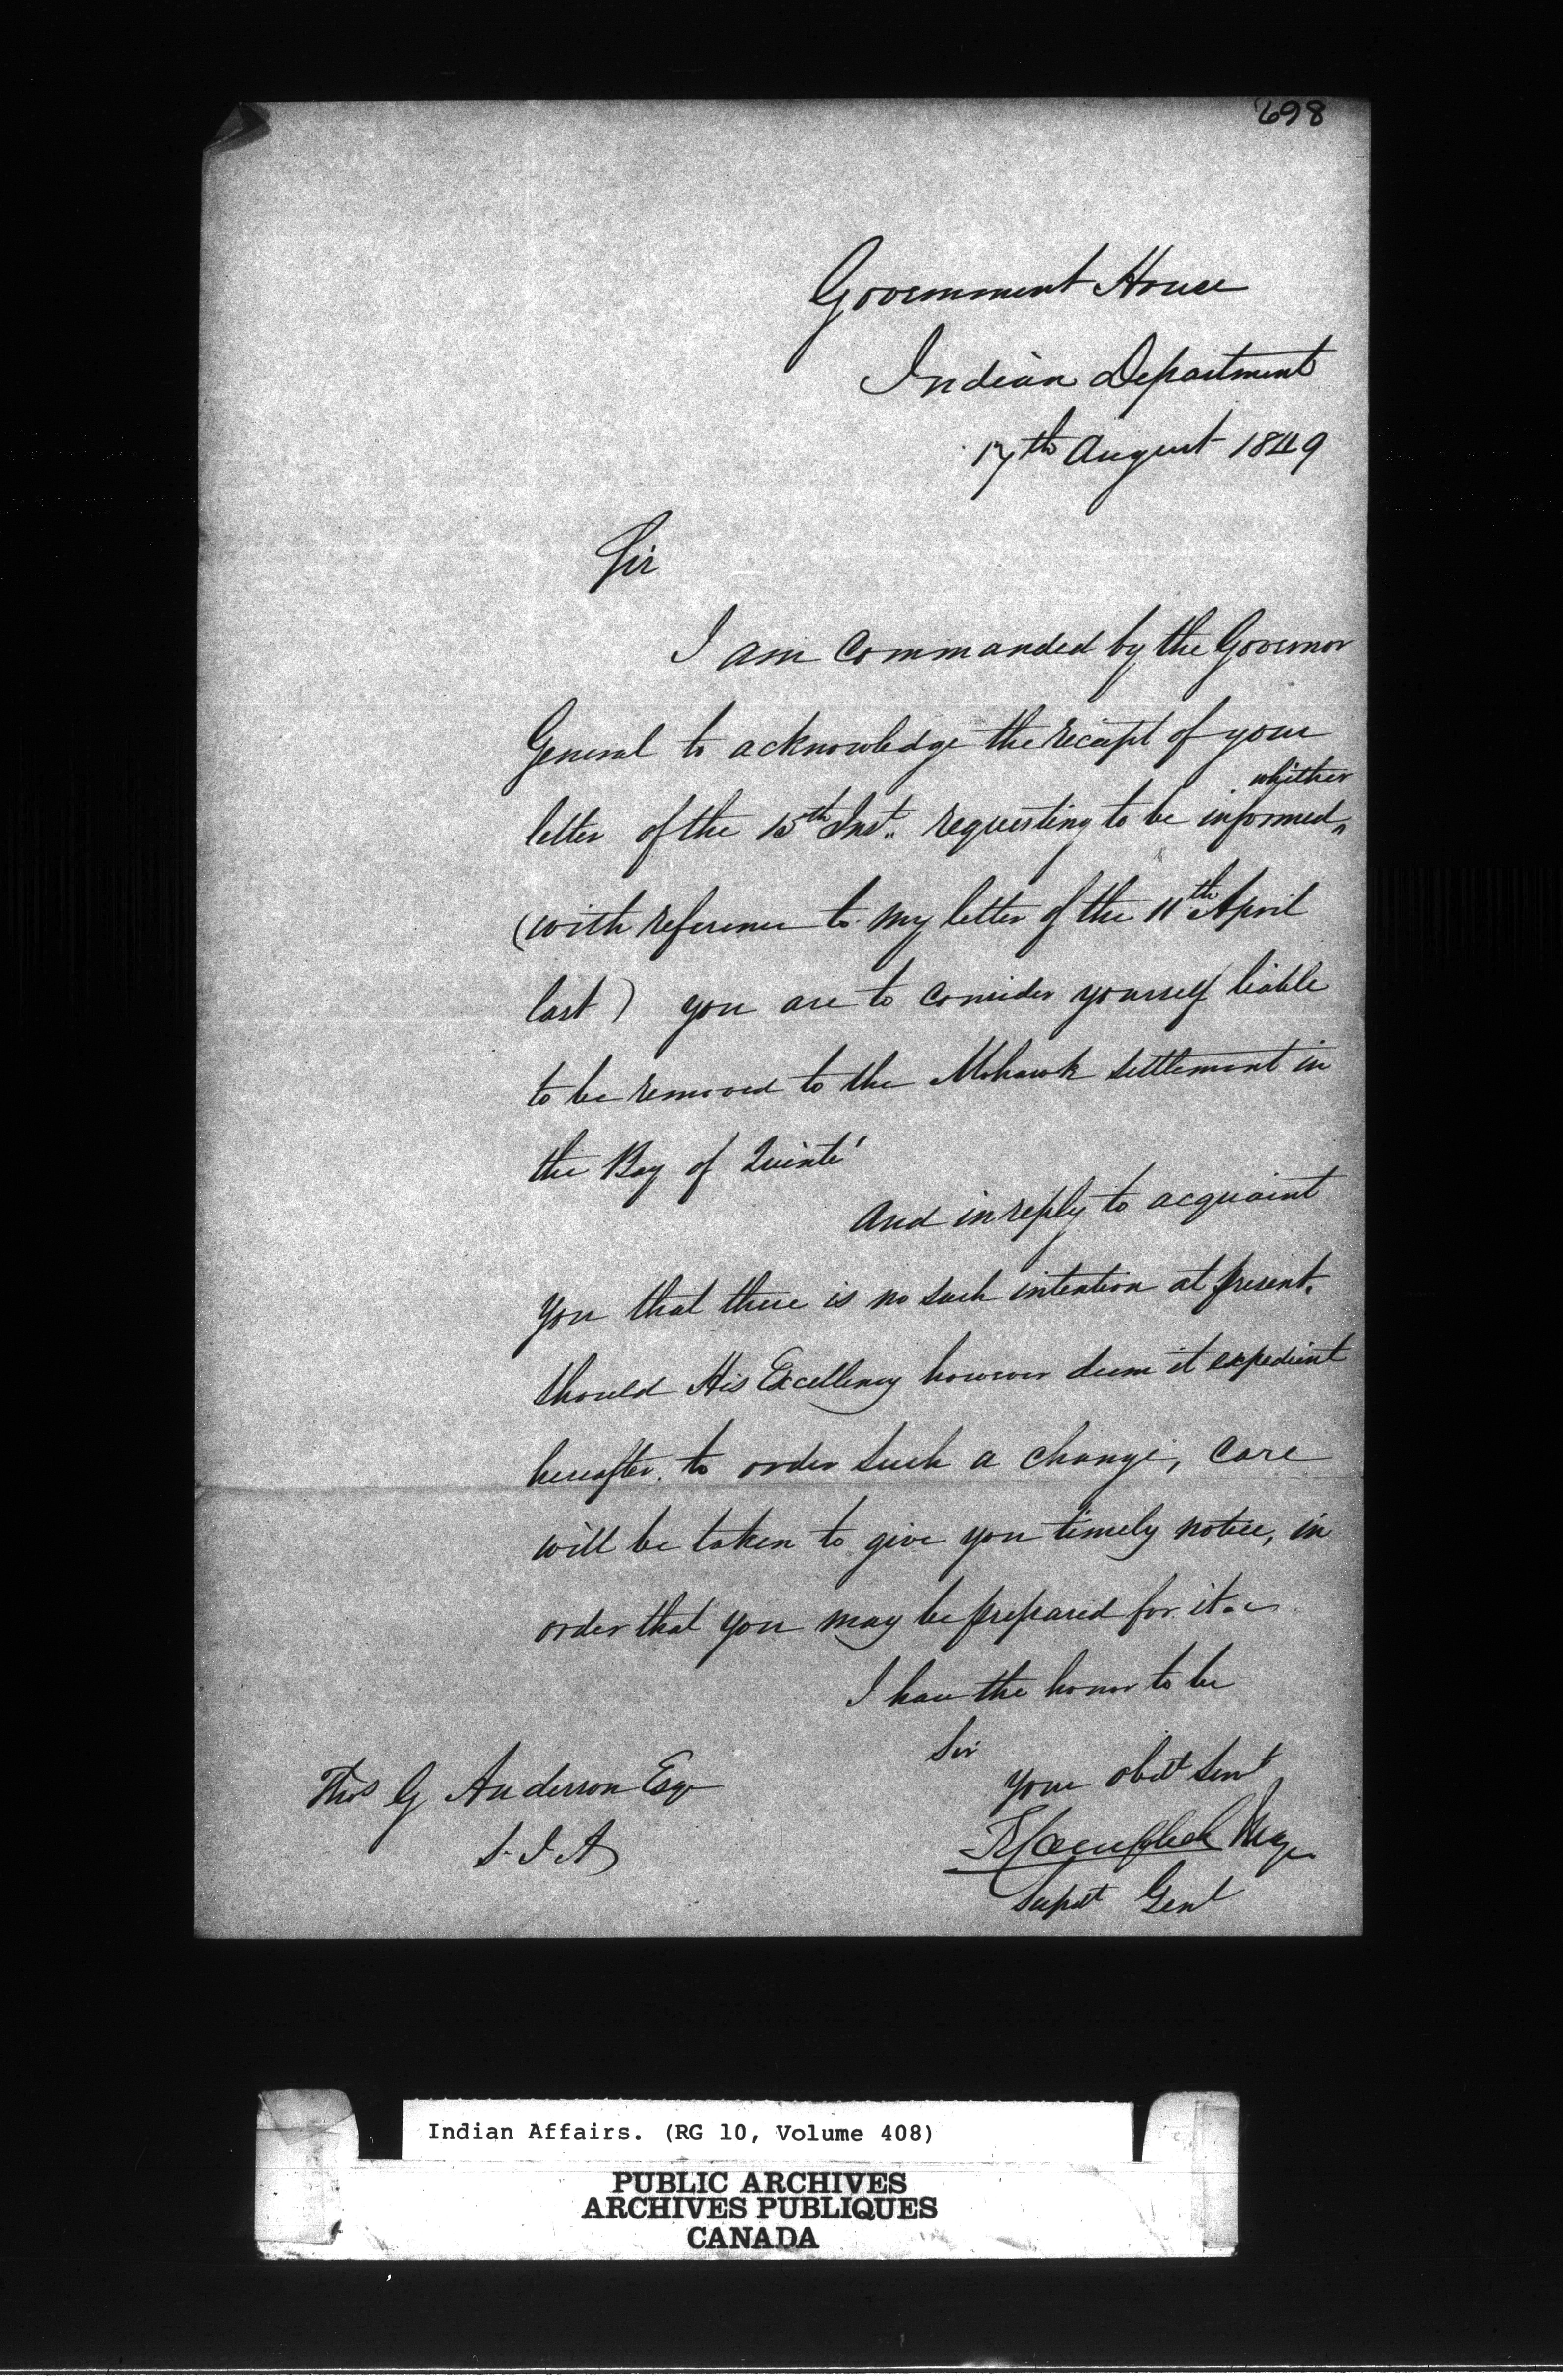 698
Government House
Indian Department
17th August 1849
Sir
I am Commanded by the Governor
General to acknowledge the receipt of your
whether
letter of the 15th Inst. requesting to be informed
(with reference to my letter of the 11th April
last) you are to consider yourself liable
to be removed to the Mohawk settlement in
the Bay of Quinté
And in reply to acquaint
you that there is no such intention at present.
Should His Excellency however deem it expedient
hereafter to order such a change, care
will be taken to give you timely notice, in
order that you may be prepared for it.
I have the honor to be
Sir
Your obdt Servt
Thos G Anderson Esqr
S.I.A
Campbell Major
Supdt Genl
Indian Affairs. (RG 10, Volume 408)
PUBLIC ARCHIVES
ARCHIVES PUBLIQUES
CANADA